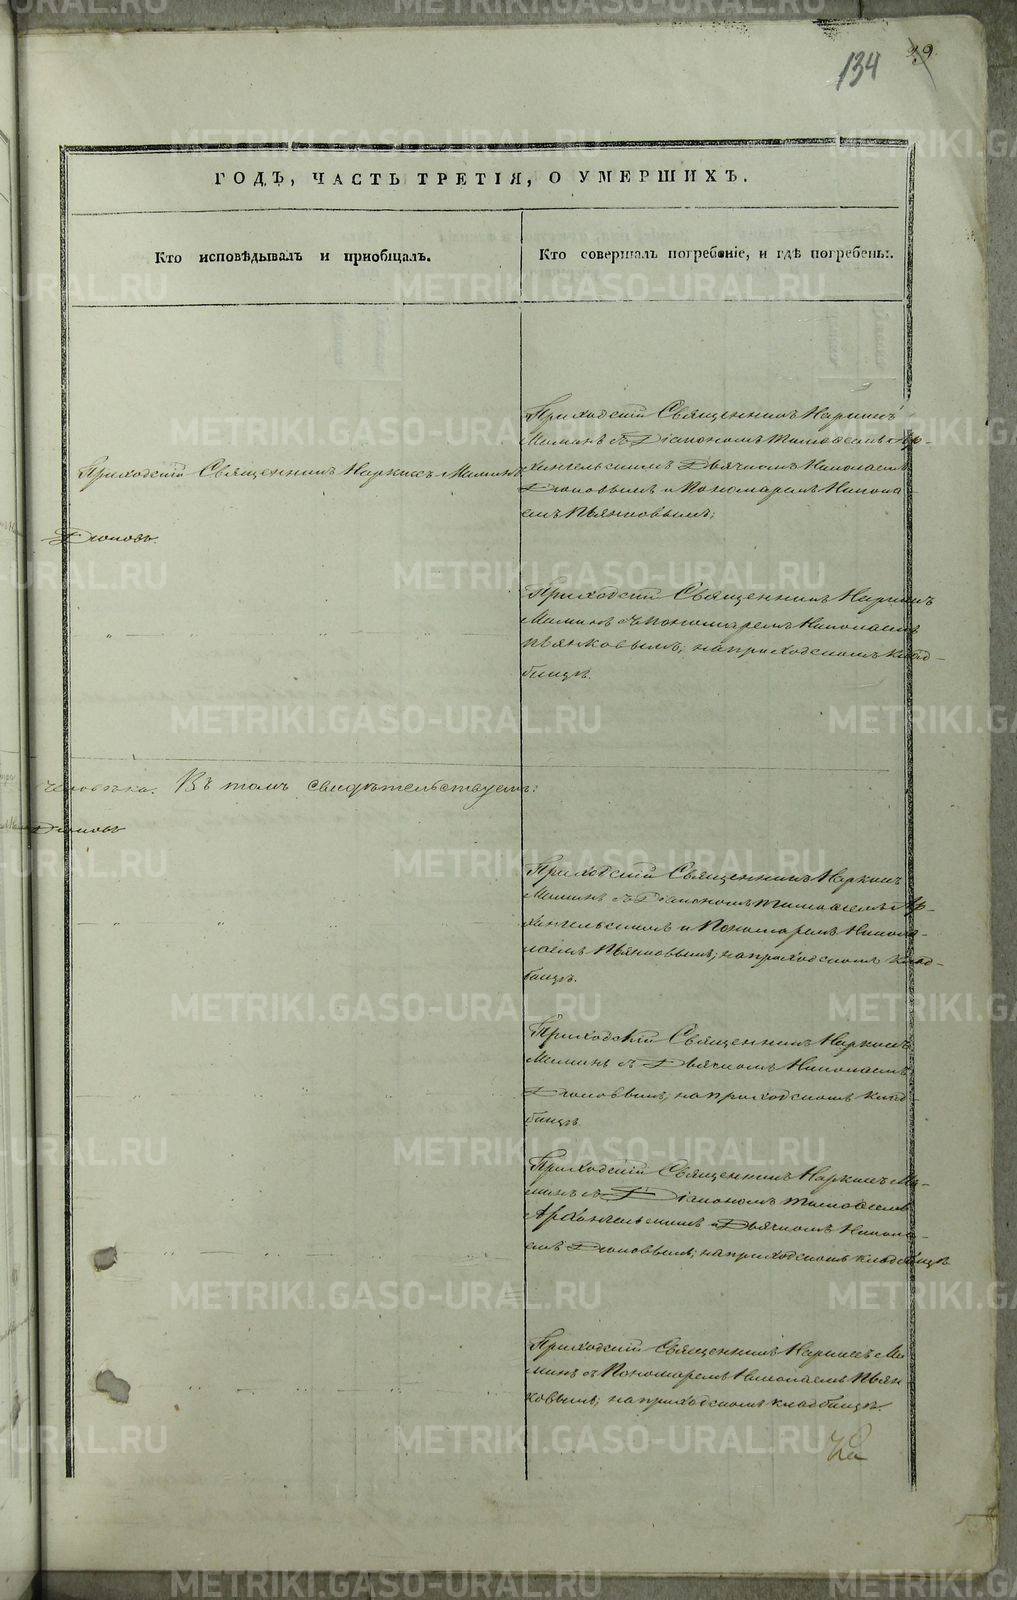 134 29
ГОДЪ, ЧАСТЬ ТРЕТІЯ, О УМЕРШИХЪ.
Кто исповѣдывалъ и приобщалъ.
Кто совершалъ погребеніе, и гдѣ погребены.
Приходскій Священникъ Наркисъ Маминъ
Діаконъ.
Человѣка. Въ томъ свидѣтельствуемъ:
Діаконъ
Приходскій Священникъ Наркисъ
Маминъ съ Діакономъ Тимофеемъ Ар-
хангельскимъ Дьячкомъ Николаемъ
и Пономаремъ Никола-
емъ Пьянковымъ;
Приходскій Священникъ Наркисъ
Маминъ съ Пономаремъ Николаемъ
Пьянковымъ; на приходскомъ клад-
бищѣ.
Приходскій Священникъ Наркисъ
Маминъ съ Діакономъ Тимофеемъ Ар-
хангельскимъ и Пономаремъ Нико-
лаемъ Пьянковымъ; на приходскомъ клад-
бищѣ.
Приходскій Священникъ Наркисъ
Маминъ съ Дьячкомъ Николаемъ
на приходскомъ клад-
бищѣ
Приходскій Священникъ Наркисъ Ма-
минъ съ Діакономъ Тимофеемъ
Архангельскимъ и Дьячкомъ Никола-
емъ на приходскомъ кладбищѣ
Приходскій Священникъ Наркисъ Ма-
минъ съ Пономаремъ Николаемъ Пьян-
ковымъ; на приходскомъ кладбищѣ.
METRIKI.GASO-URAL.RU